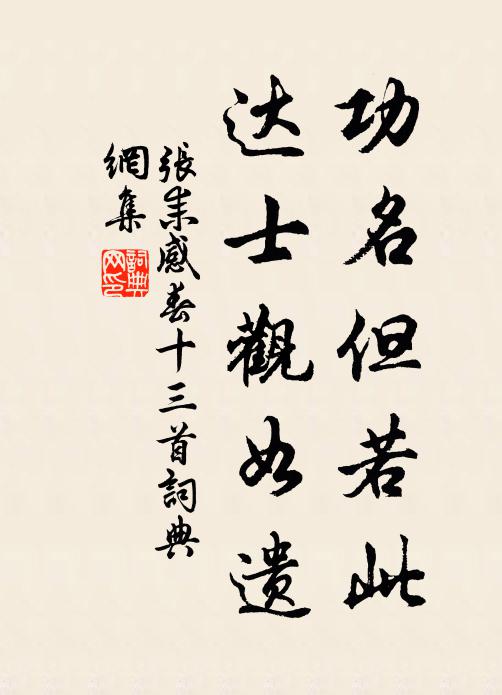 功名但若此
达士觀如遗
張耒感春十三首詞典
網集
詞典
网印